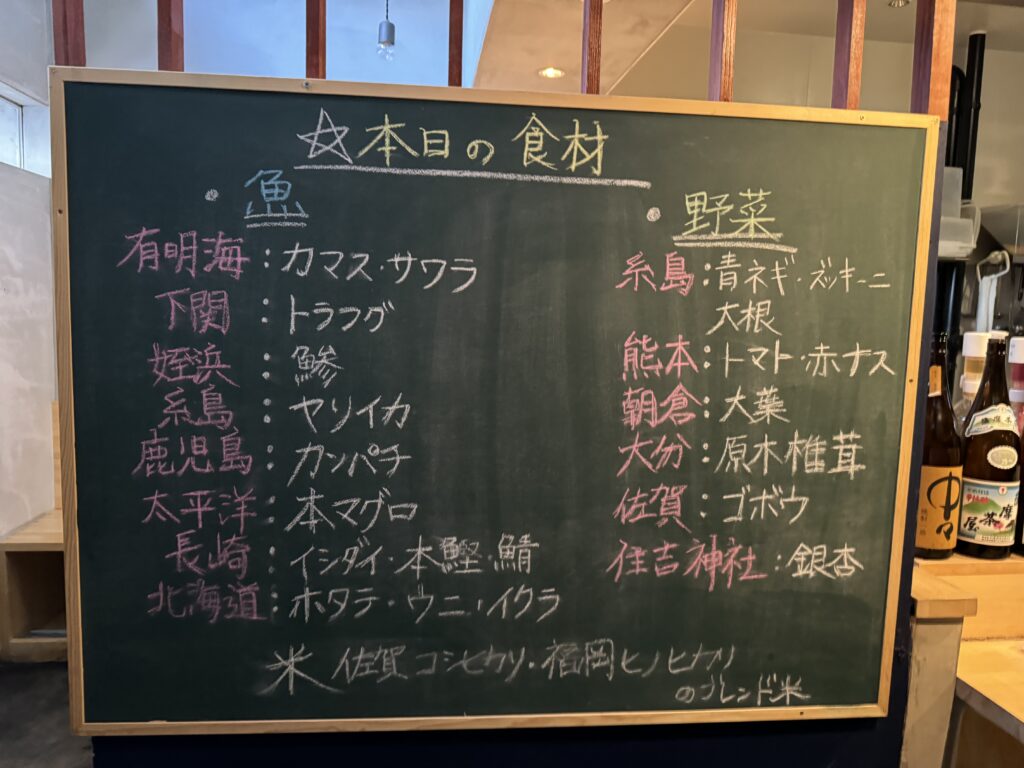 ☆本日の食材
・魚
有明海：カマス・サワラ
下関：トラフグ
姪浜：鰺
糸島：ヤリイカ
鹿児島：カンパチ
太平洋：本マグロ
長崎：イシダイ・本鰹・鯖
北海道：ホタテ・ウニ・イクラ
・野菜
糸島：青ネギ・ズッキーニ
大根
熊本：トマト・赤ナス
朝倉：大葉
大分：原木椎茸
佐賀：ゴボウ
住吉神社：銀杏
米 佐賀コシヒカリ・福岡ヒノヒカリ
のブレンド米
中々
摩
屋茶